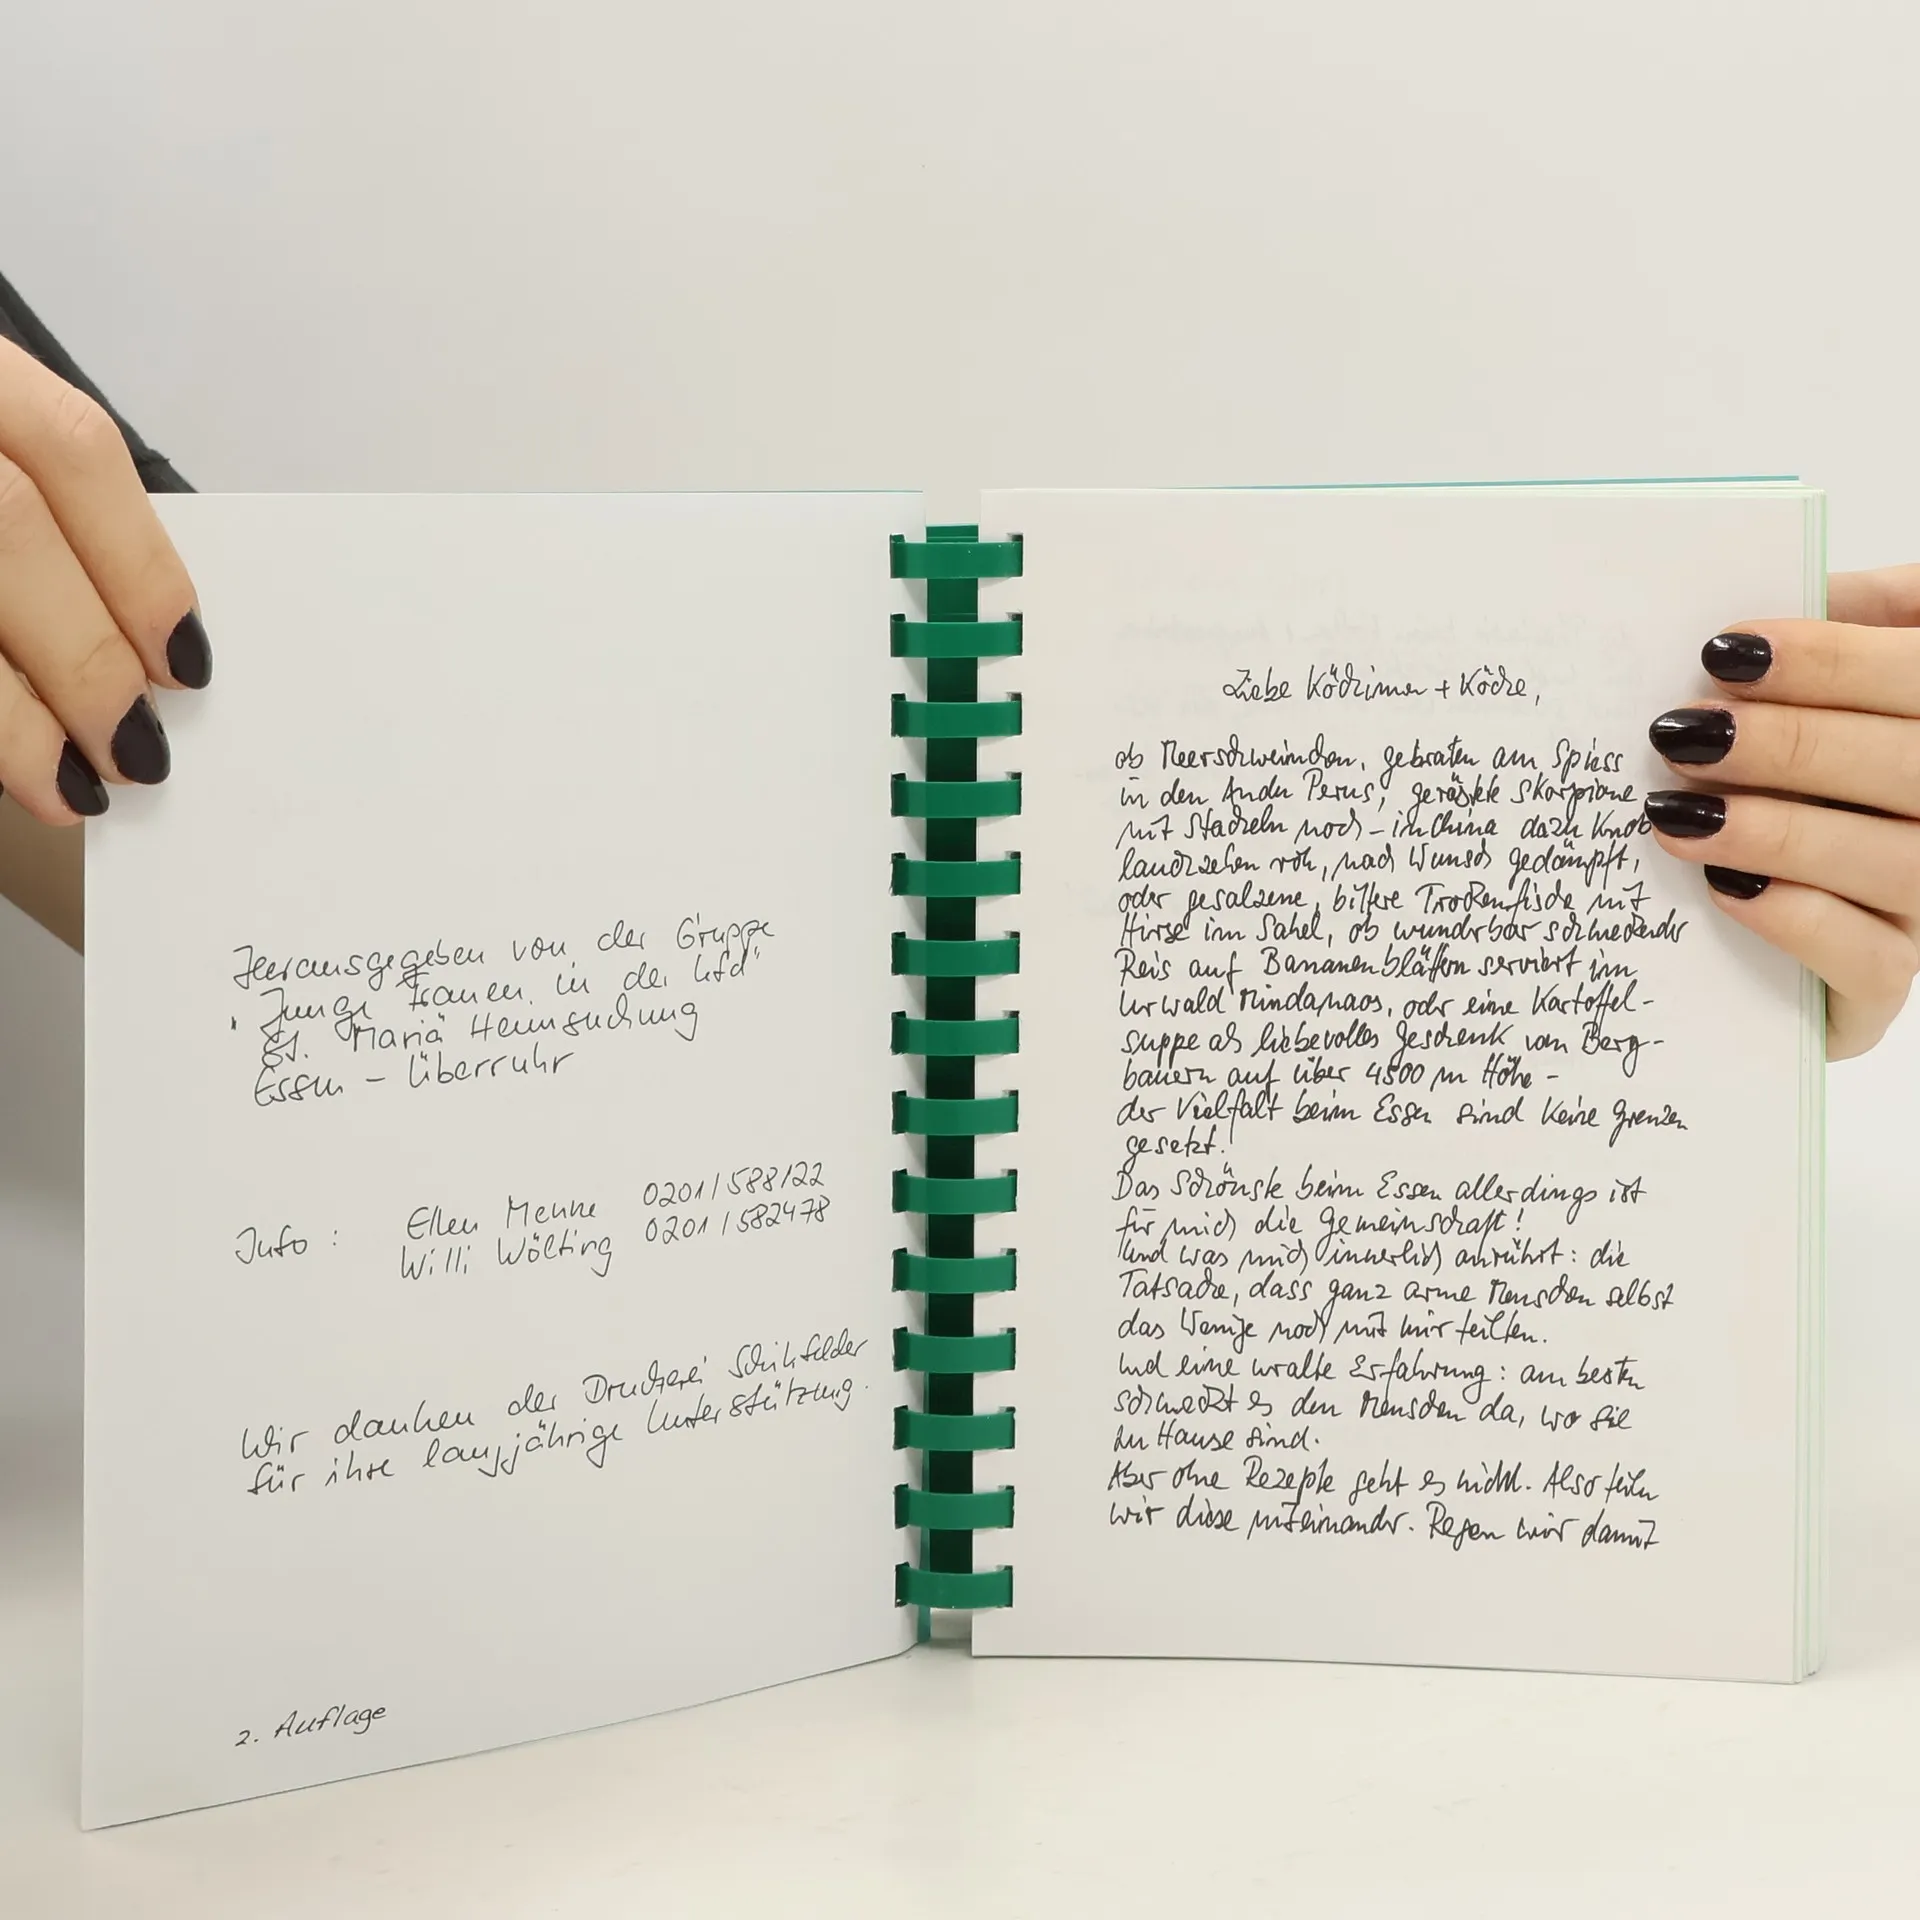 Herausgegeben von der Gruppe
"Junge Frauen in der kfd"
St. Mariä Heimsuchung
Essen - Überruhr
Info : Ellen Menne 0201/588122
Willi Wölting 0201/582478
Wir danken der Druckerei
für ihre langjährige Unterstützung.
2. Auflage
Liebe Köchinnen + Köche,
ob Meerschweinchen, gebraten am Spiess
in den Anden Perus, geröstete Skorpione
mit Stacheln noch - in China dazu Knob
lauchzehen roh, nach Wunsch gedämpft,
oder gesalzene, bittere Trockenfische mit
Hirse im Sahel, ob wunderbar schmeckender
Reis auf Bananenblättern serviert im
Urwald Mindanaos, oder eine Kartoffel-
suppe als liebevolles Geschenk von Berg-
bauern auf über 4500 m Höhe -
der Vielfalt beim Essen sind keine Grenzen
gesetzt!
Das Schönste beim Essen allerdings ist
für mich die Gemeinschaft!
Und was mich innerlich anrührt: die
Tatsache, dass ganz arme Menschen selbst
das Wenige noch mit mir teilten.
Und eine uralte Erfahrung: am besten
schmeckt es den Menschen da, wo sie
zu Hause sind.
Aber ohne Rezepte geht es nicht. Also teilen
wir diese miteinander. Regen wir damit